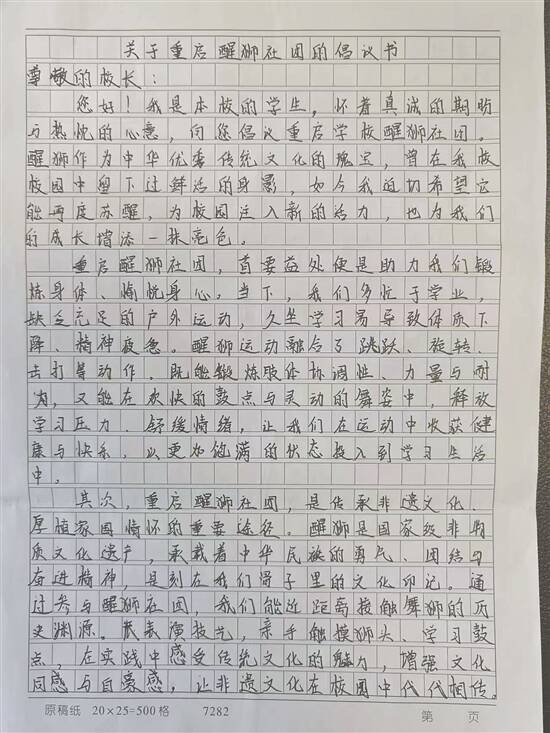 关于重启醒狮社团的倡议书
尊敬的校长：
您好！我是本校的学生，怀着真诚的期盼
与热忱的心意，向您倡议重启学校醒狮社团。
醒狮作为中华优秀传统文化的瑰宝，曾在我校
校园中留下过鲜活的身影，如今我迫切希望它
能再度苏醒，为校园注入新的活力，也为我们
的成长增添一抹亮色。
重启醒狮社团，首要益处便是助力我们锻
炼身体、愉悦身心。当下，我们多忙于学业，
缺乏充足的户外运动，久坐学习易导致体质下
降、精神疲惫。醒狮运动融合了跳跃、旋转、
击打等动作，既能锻炼肢体协调性、力量与耐
力，又能在欢快的鼓点与灵动的舞姿中，释放
学习压力、舒缓情绪，让我们在运动中收获健
康与快乐，以更加饱满的状态投入到学习生活
中。
其次，重启醒狮社团，是传承非遗文化、
厚植家国情怀的重要途径。醒狮是国家级非物
质文化遗产，承载着中华民族的勇气、团结与
奋进精神，是刻在我们骨子里的文化印记。通
过参与醒狮社团，我们能近距离接触舞狮的历
史渊源、表演技艺，亲手触摸狮头、学习鼓
点，在实践中感受传统文化的魅力，增强文化
同感与自豪感，让非遗文化在校园中代代相传。
原稿纸 20×25=500格 7282 第 页